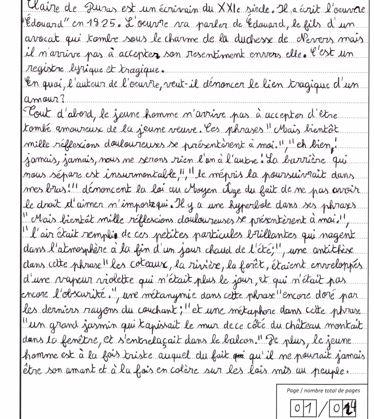 Claire de Duras est un écrivain du XXIe siècle. Il a écrit l'oeuvre
"Edouard" en 1825. L'oeuvre va parler de Edouard, le fils d'un
avocat qui tombe sous le charme de la duchesse de Nevers mais
il n'arrive pas à accepter son resentiment envers elle. C'est un
registre lyrique et tragique.
En quoi, l'auteur de l'oeuvre, veut-il dénoncer le lien tragique d'un
amour?
Tout d'abord, le jeune homme n'arrive pas à accepter d'être
tombé amoureux de la jeune veuve. Ces phrases "Mais bientôt
mille réflexions douloureuses se présentèrent à moi.", "eh bien,
jamais, jamais, nous ne serons rien l'un à l'autre! La barrière qui
nous sépare est insurmontable,", "le mépris la poursuivrait dans
mes bras!" dénoncent la loi au Moyen Age du fait de ne pas avoir
le droit d'aimer n'importe qui. Il y a une hyperbole dans ses phrases
"Mais bientôt mille réflexions douloureuses se présentèrent à moi.",
"l'air était rempli de ces petites particules brillantes qui nagent
dans l'atmosphère à la fin d'un jour chaud de l'été;", une antithèse
dans cette phrase "les coteaux, la rivière, la forêt, étaient enveloppés
d'une vapeur violette qui n'était plus le jour, et qui n'était pas
encore l'obscurité.", une métanymie dans cette phrase "encore doré par
les derniers rayons du couchant;" et une métaphore dans cette phrase
"un grand jasmin qui tapissait le mur de ce côté du château montait
dans la fenêtre, et s'entrelaçait dans le balcon." De plus, le jeune
homme est à la fois triste auquel du fait qu'il ne pourrait jamais
être son amant et à la fois en colère sur les lois mis au peuple.
Page / nombre total de pages
01 / 04